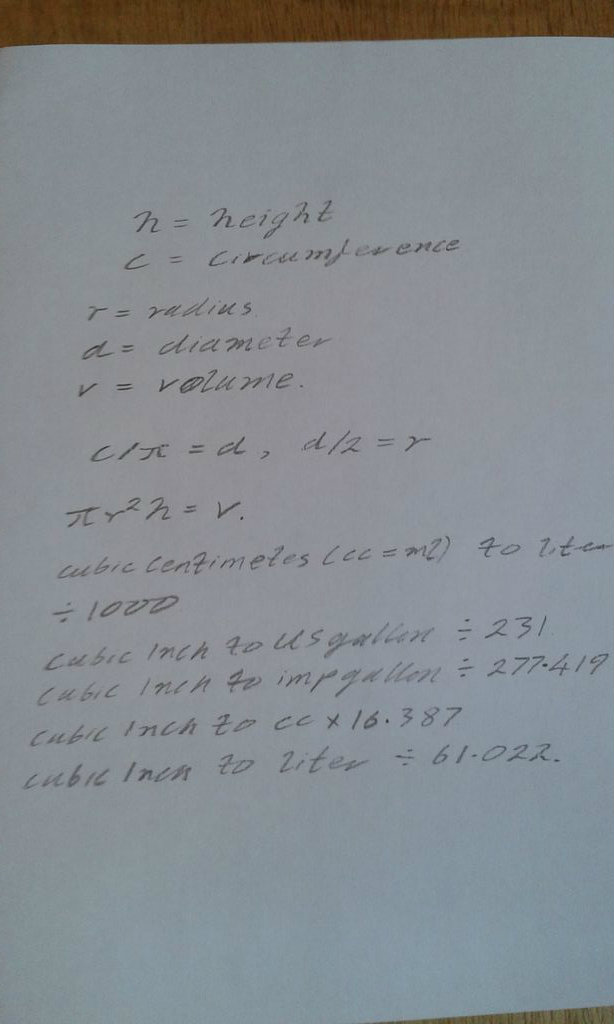 h = height
c = circumference
r = radius
d = diameter
v = volume.
c/π = d, d/2 = r
πr²h = v.
cubic centimetes (cc = ml) to liter
÷ 1000
cubic Inch to US gallon ÷ 231
cubic Inch to imp gallon ÷ 277.419
cubic Inch to cc x 16.387
cubic Inch to liter ÷ 61.022.